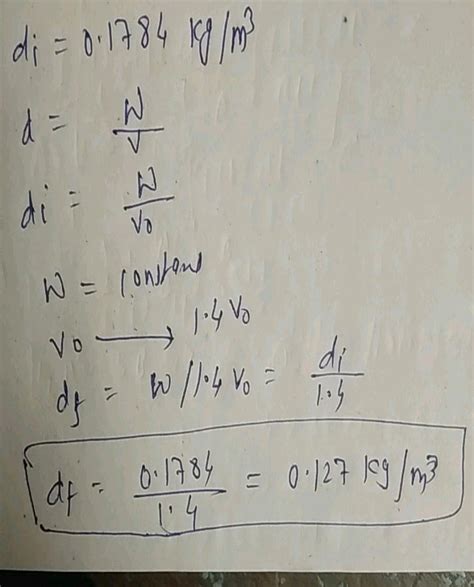 di = 0.1784 kg/m³
d = W/V
di = W/V₀
W = constant
V₀ → 1.4 V₀
df = W/1.4 V₀ = di/1.4
df = 0.1784/1.4 = 0.127 kg/m³